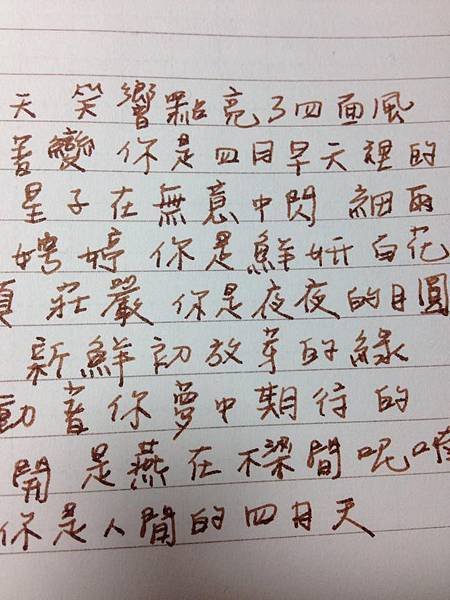 天 笑響點亮了四面風
著變 你是四月早天裡的
星子在無意中閃 細雨
娉婷 你是鮮妍百花
莊嚴 你是夜夜的月圓
新鮮初放芽的綠
動著你夢中期待的
開 是燕在樑間呢喃
你是人間的四月天